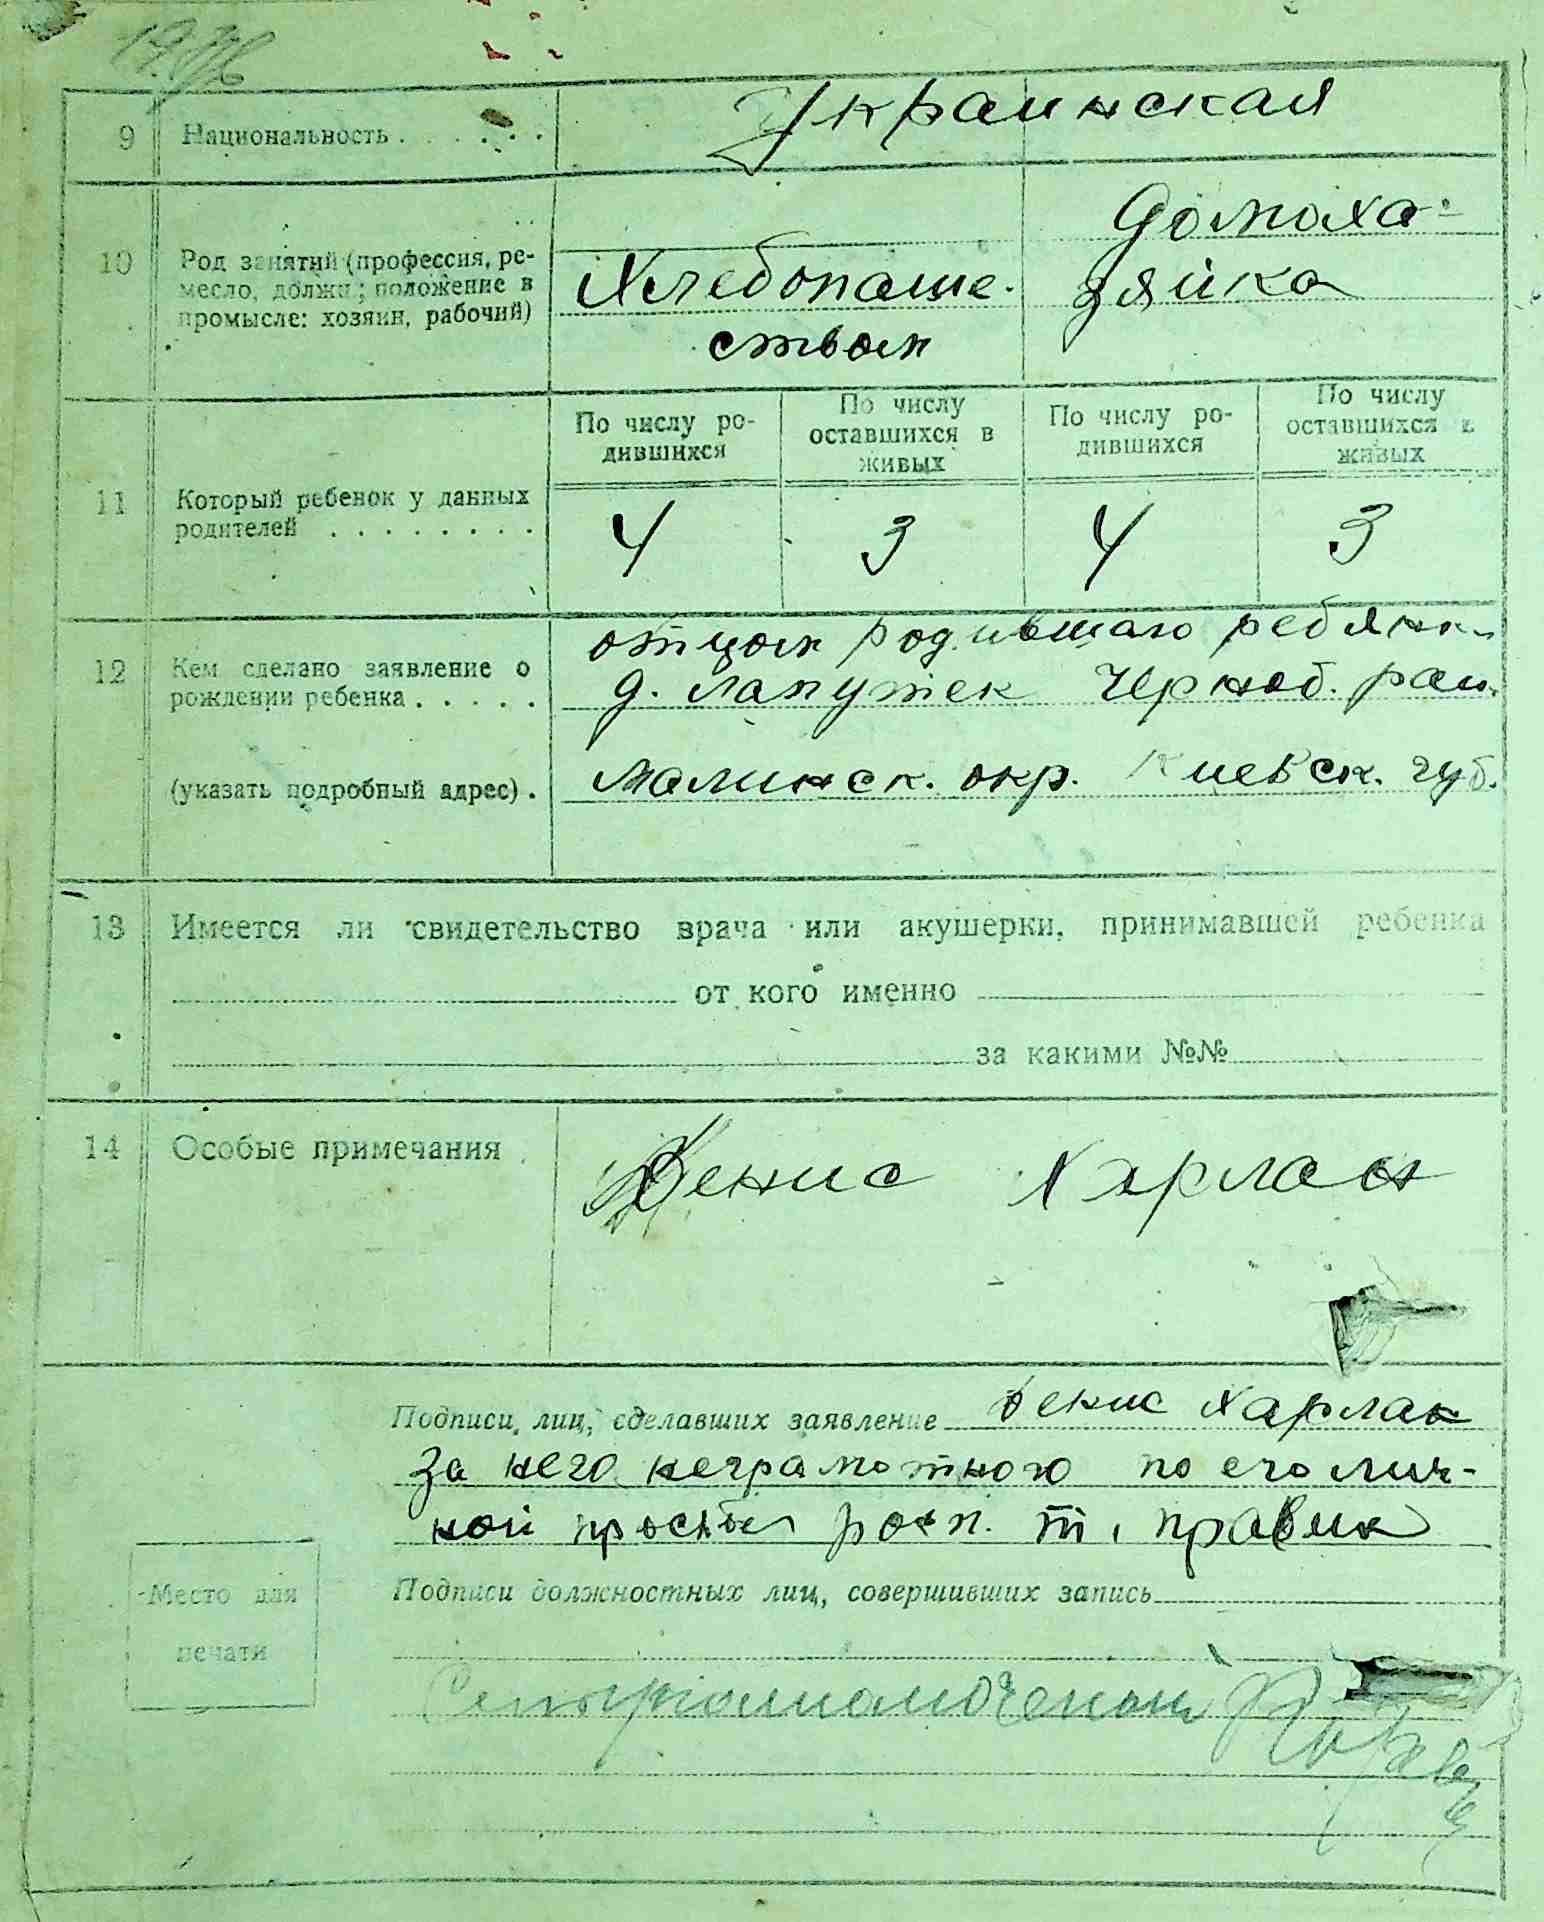 9 Национальность . . . . . . . Украинская
10 Род занятий (профессия, ре-
месло, должн; положение в
промысле: хозяин, рабочий)
Хлебопаше-
ством
Домоха-
зяйка
11 Который ребенок у данных
родителей . . . . . . . . .
По числу ро-
дившихся
По числу
оставшихся в
живых
По числу ро-
дившихся
По числу
оставшихся в
живых
4 3 4 3
12 Кем сделано заявление о
рождении ребенка . . . . .
(указать подробный адрес) .
отцом родившаго ребянк
д. Лапутек Черноб. рай.
Малинск. окр. Киевск. губ.
13 Имеется ли свидетельство врача или акушерки, принимавшей ребенка
от кого именно
за какими №№
14 Особые примечания Денис Харлан
Подписи лиц, сделавших заявление Денис Харлан
За него неграмотного по его лич-
ной просьбы росп. Т. Правик
Подписи должностных лиц, совершивших запись
Место для
печати